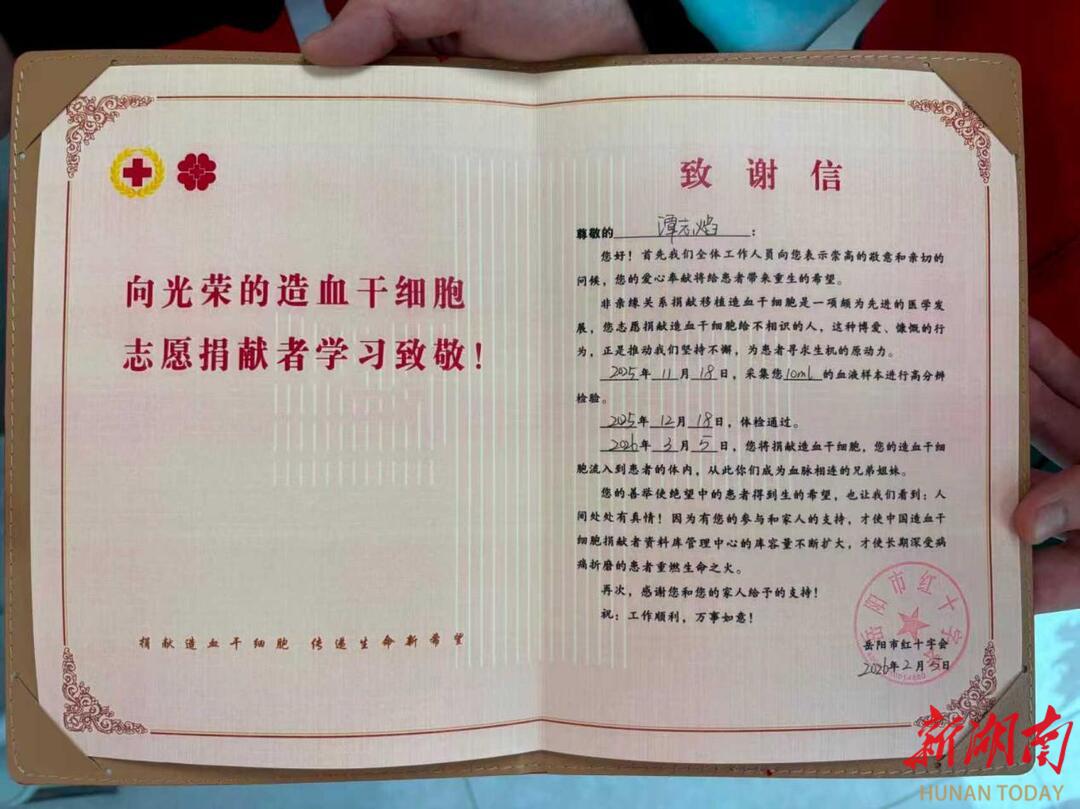 向光荣的造血干细胞
志愿捐献者学习致敬!
捐献造血干细胞 传递生命新希望
致谢信
尊敬的 谭志焰 :
您好!首先我们全体工作人员向您表示崇高的敬意和亲切的
问候,您的爱心奉献将给患者带来重生的希望。
非亲缘关系捐献移植造血干细胞是一项颇为先进的医学发
展,您志愿捐献造血干细胞给不相识的人,这种博爱、慷慨的行
为,正是推动我们坚持不懈,为患者寻求生机的原动力。
2025年11月18日,采集您10ml的血液样本进行高分辨
检验。
2025年12月18日,体检通过。
2026年3月5日,您将捐献造血干细胞,您的造血干细
胞流入到患者的体内,从此你们成为血脉相连的兄弟姐妹。
您的善举使绝望中的患者得到生的希望,也让我们看到:人
间处处有真情!因为有您的参与和家人的支持,才使中国造血干
细胞捐献者资料库管理中心的库容量不断扩大,才使长期深受病
痛折磨的患者重燃生命之火。
再次,感谢您和您的家人给予的支持!
祝:工作顺利,万事如意!
岳阳市红十字会
岳阳市红十字会
2026年2月5日
新湖南
HUNAN TODAY